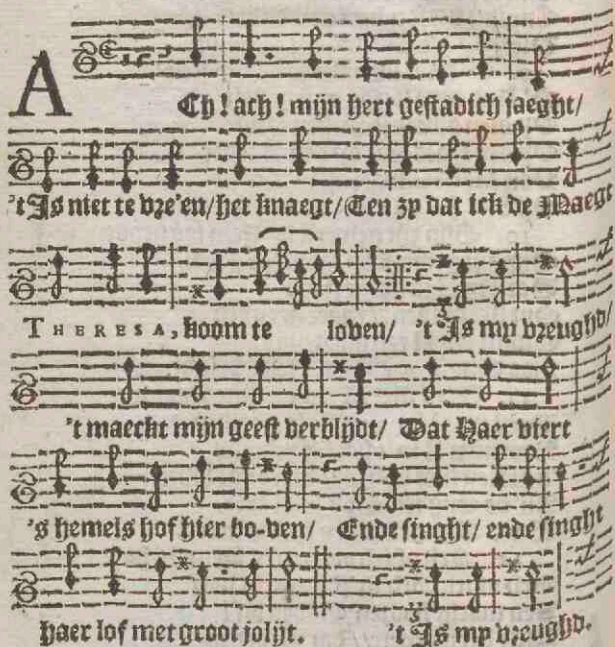 ACh! ach! mijn hert gestadich jaeght/
't Is niet te vre'en/ het knaegt/ Ten zy dat ick de Maegt
THERESA, koom te loven/ 't Is my vreughd/
't maeckt mijn geest verblijdt/ Dat Haer viert
's hemels hof hier bo-ven/ Ende singht/ ende singht
haer lof met groot jolijt. 't Is my vreughd.